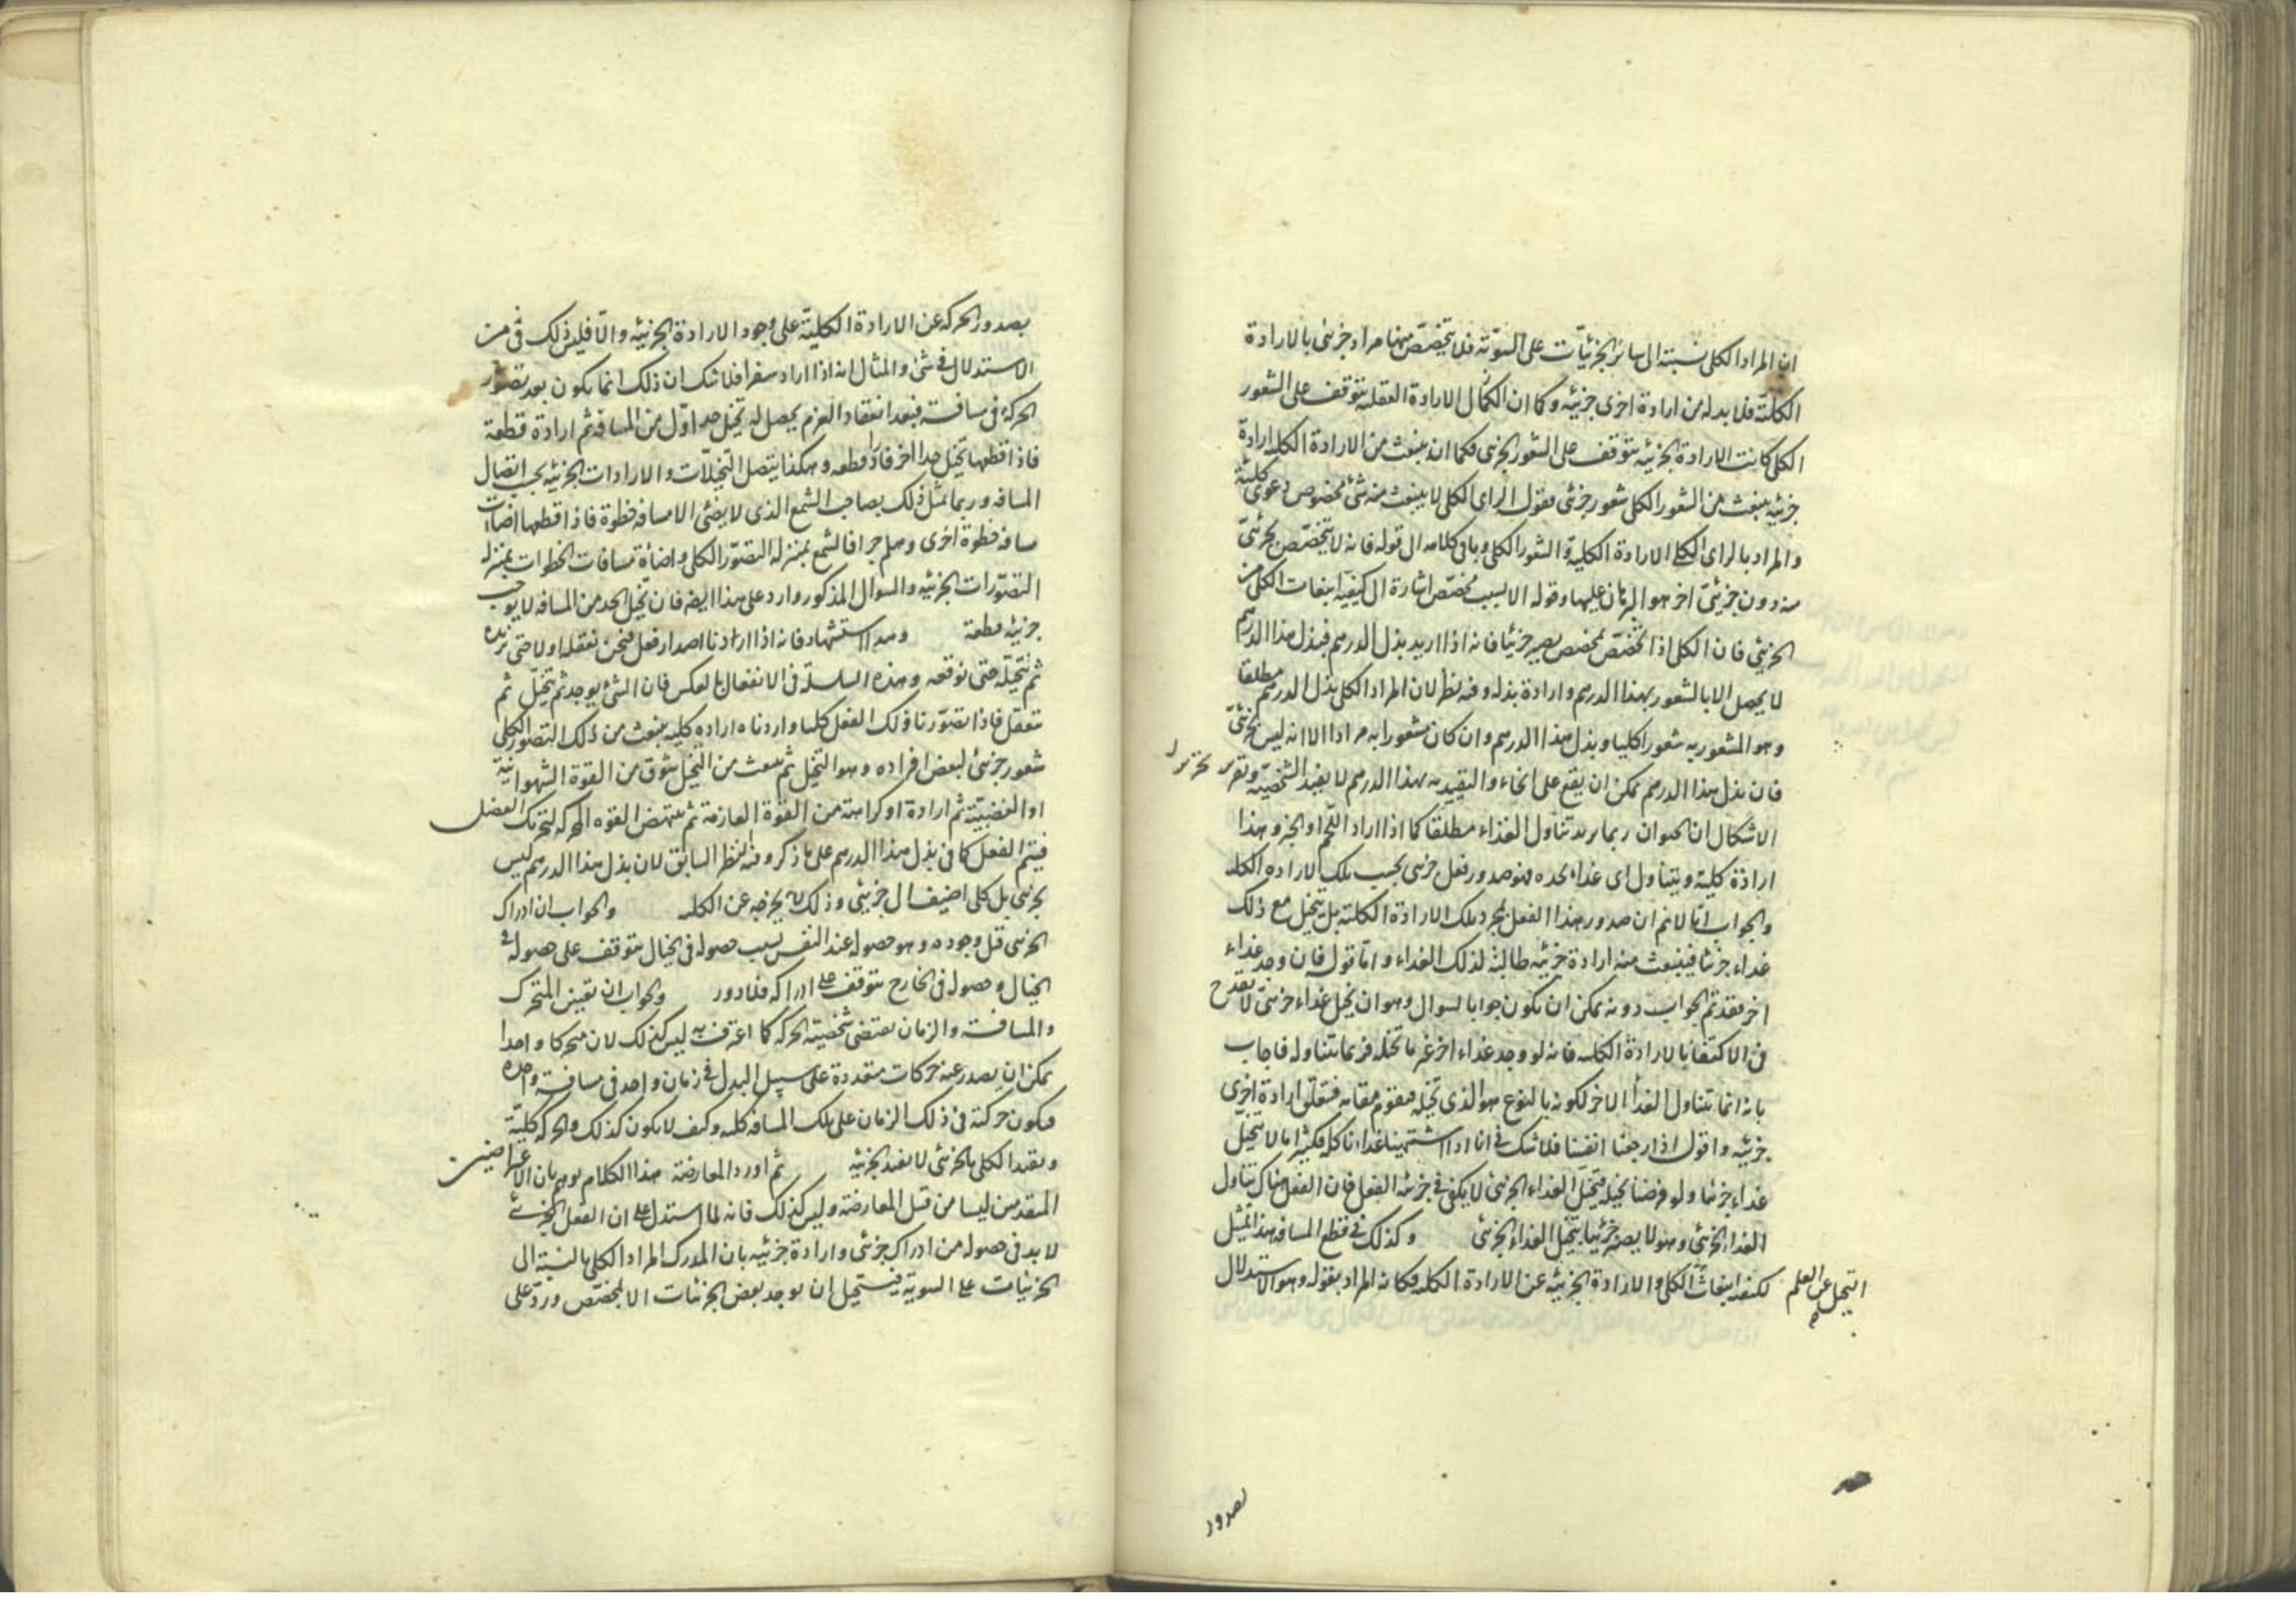 ان المراد الكلى نسبته الى سائر الجزئيات على السوية فلا يتخصص منها مراد جزئى بالارادة
الكلية فلا بد له من ارادة اخرى جزئية وكما ان الكمال الارادة العقلية يتوقف على الشعور
الكلى كانت الارادة الجزئية يتوقف على الشعور الجزئى فكما انه ينبعث من الارادة الكلية ارادة
جزئية ينبعث من الشعور الكلى شعور جزئى فقوله الراى الكلى لا ينبعث منه شئ مخصوص دعوى كلية
والمراد بالراى الكلى الارادة الكلية والشعور الكلى وباقى كلامه الى قوله فانه لا يتخصص بجزئى
منه دون جزئى اخر هو البرهان عليها وقوله الا بسبب مخصص اشارة الى كيفية انبعاث الكلى من
الجزئى فان الكلى اذا تخصص بمخصص يصير جزئيا فانه اذا اريد بذل الدرهم فبذل هذا الدرهم
لا يحصل الا بالشعور بهذا الدرهم وارادة بذله وفيه نظر لان المراد الكلى بذل الدرهم مطلقا
وهو المشعور به شعورا كليا وبذل هذا الدرهم وان كان مشعورا به مرادا الا انه ليس بجزئى
فان بذل هذا الدرهم يمكن ان يقع على انحاء والتقييد به بهذا الدرهم لا يفيد الشخصية وتقرير
الاشكال ان الحيوان ربما يريد تناول الغذاء مطلقا كما اذا اراد اللحم او الخبز وهذا
ارادة كلية ويتناول اى غذاء يجده فهو صدور فعل جزئى بحسب تلك الارادة الكلية
والجواب انا لا نم ان صدور هذا الفعل بمجرد تلك الارادة الكلية بل يتخيل مع ذلك
غذاء جزئيا فينبعث منه ارادة جزئية طالبة لذلك الغذاء واما قوله فان وجد غذاء
اخر فقد تم الجواب دونه يمكن ان يكون جوابا لسوال وهو ان تخيل غذاء جزئى لا يقدح
فى الاكتفاء بالارادة الكلية فانه لو وجد غذاء اخر غير ما تخيله فربما يتناوله فاجاب
بانه انما يتناول الغذاء الاخر لكونه بالنوع هو الذى تخيله فيقوم مقامه فيتعلق ارادة اخرى
جزئية واقول اذا رجعنا انفسنا فلا شك فى انا اذا اشتهينا غذاء ناكله فكثيرا ما لا نتخيل
غذاء جزئيا ولو فرضنا تخيله فتخيل الغذاء الجزئى لا يكفى فى جزئية الفعل فان الفعل هناك تناول
الغذاء الجزئى وهو لا يصير جزئيا بتخيل الغذاء الجزئى وكذلك فى قطع المسافة هذا تمثيل
لكيفية انبعاث الكلى والارادة الجزئية عن الارادة الكلية فكانه المراد بقوله وهو الاستدلال
التخيل عن العلم
بصدور
بصدور الحركة عن الارادة الكلية على وجود الارادة الجزئية والا فليس ذلك فى من
الاستدلال فى شئ والمثال انه اذا اراد سفرا فلا شك ان ذلك انما يكون بعد تصور
الحركة فى مسافة فبعد انعقاد العزم يحصل له تخيل حد اول من المسافة ثم ارادة قطعه
فاذا قطعها تخيل حدا اخر فاراد قطعه وهكذا يتصل التخيلات والارادات الجزئية بحسب اتصال
المسافة وربما يمثل ذلك بصاحب الشمع الذى لا يضئ الا مسافة خطوة فاذا قطعها اضاءت
مسافة خطوة اخرى وهلم جرا فالشمع بمنزلة التصور الكلى واضاءة مسافات الخطوات بمنزلة
التصورات الجزئية والسوال المذكور وارد على هذا ايضا فان تخيل الحد من المسافة لا يوجب
جزئية قطعه وهذا استشهاد فانه اذا اردنا اصدار فعل فنحن نعقله اولا حتى نريده
ثم نتخيله حتى نوقعه وهذه السلسلة فى الانفعال بالعكس فان الشئ يوجد ثم يتخيل ثم
يتعقل فاذا تصورنا ذلك الفعل كليا واردناه ارادة كلية ينبعث من ذلك التصور الكلى
شعور جزئى لبعض افراده وهو التخيل ثم ينبعث من التخيل شوق من القوة الشهوانية
او الغضبية ثم ارادة او كراهة من القوة العازمة ثم ينتهض القوة المحركة لتحريك العضل
فيتم الفعل كما فى بذل هذا الدرهم على ما ذكر وفيه النظر السابق لان بذل هذا الدرهم ليس
بجزئى بل كلى اضيف الى جزئى وذلك لا يخرجه عن الكلية والجواب ان ادراك
الجزئى قبل وجوده وهو حصوله عند النفس بسبب حصوله فى الخيال يتوقف على حصوله فى
الخيال وحصوله فى الخارج يتوقف على ادراكه فلا دور والجواب ان تعيين المتحرك
والمسافة والزمان يقتضى شخصية الحركة كما اعترف به ليس كذلك لان متحركا واحدا
يمكن ان يصدر عنه حركات متعددة على سبيل البدل فى زمان واحد فى مسافة واحدة
فيكون حركته فى ذلك الزمان على تلك المسافة كلية وكيف لا يكون كذلك والحركة كلية
وتقييد الكلى بالجزئى لا يفيد الجزئية ثم اورد المعارضة هذا الكلام يوهم بان الاعتراضين
المتقدمين ليسا من قبيل المعارضة وليس كذلك فانه لما استدل على ان الفعل الجزئى
لا بد فى حصوله من ادراك جزئى وارادة جزئية بان المدرك المراد الكلى بالنسبة الى
الجزئيات على السوية فيستحيل ان يوجد بعض الجزئيات الا لمخصص ورد على